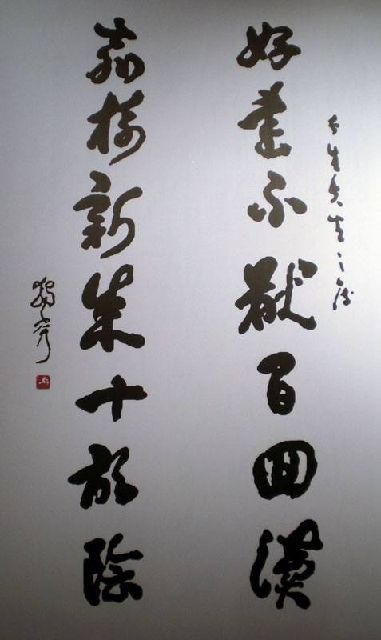 好書不猒百回讀
嘉樹新栽十畝陰